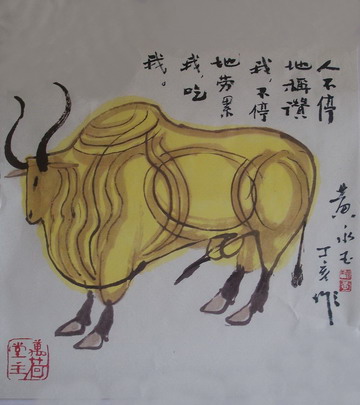 人不停
地称讚
我，不停
地劳累
我，吃
我。
黄永玉
丁亥作
萬荷
堂主